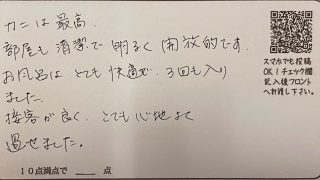 カニは最高。
部屋も清潔で明るく開放的です。
お風呂はとても快適で、3回も入り
ました。
接客が良く、とても心地よく
過せました。
10点満点で 点
スマホでも投稿
OK！チェック欄
記入後フロント
へお渡し下さい。